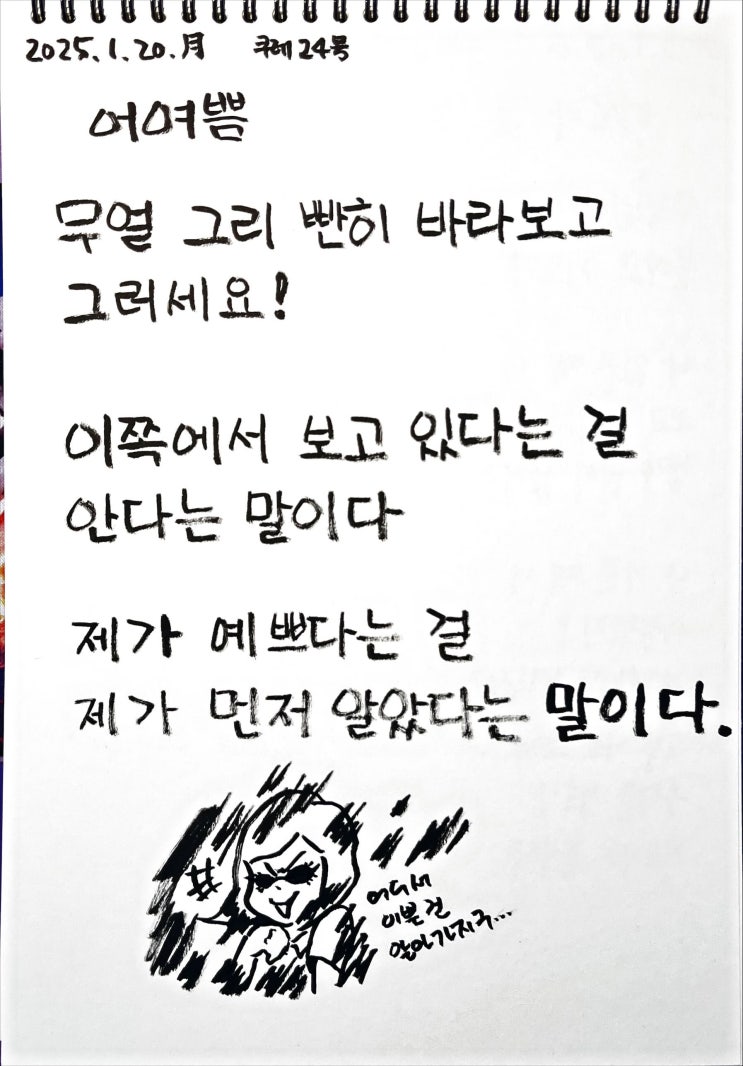 2025.1.20.月 쿠레 24号
어여쁨
무열 그리 빤히 바라보고
그러세요!
이쪽에서 보고 있다는 걸
안다는 말이다
제가 예쁘다는 걸
제가 먼저 알았다는 말이다.
어디서
이쁜건
알아가지구...